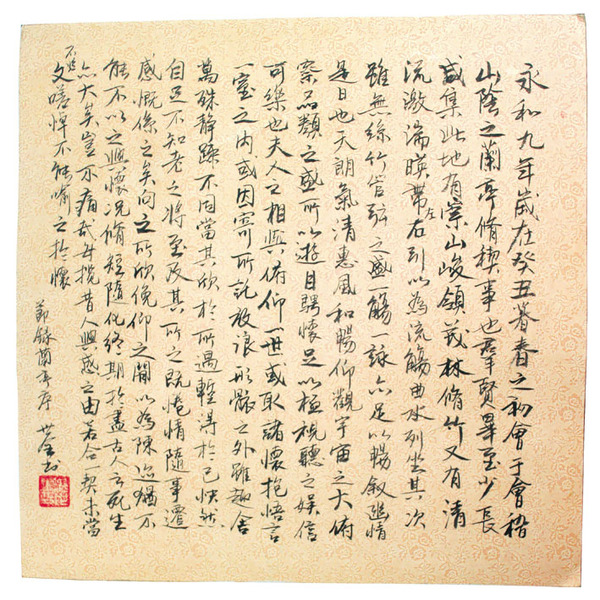 永和九年歲在癸丑暮春之初會于會稽
山陰之蘭亭脩稧事也羣賢畢至少長
咸集此地有崇山峻領茂林脩竹又有清
流激湍暎帶左右引以為流觴曲水列坐其次
雖無絲竹管弦之盛一觴一詠亦足以暢敘幽情
是日也天朗氣清惠風和暢仰觀宇宙之大俯
察品類之盛所以遊目騁懷足以極視聽之娛信
可樂也夫人之相與俯仰一世或取諸懷抱悟言
一室之內或因寄所託放浪形骸之外雖趣舍
萬殊靜躁不同當其欣於所遇暫得於己快然
自足不知老之將至及其所之既惓情隨事遷
感慨係之矣向之所欣俛仰之間以為陳迹猶不
能不以之興懷況脩短隨化終期於盡古人云死生
亦大矣豈不痛哉每攬昔人興感之由若合一契未嘗
不臨文嗟悼不能喻之於懷
節錄蘭亭序 世書